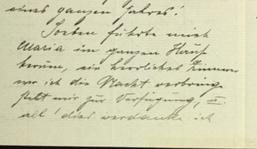 eines ganzen Jahres!
Soeben führte mich
Maria im ganzen Haus
herum, ein herrliches Zimmer
wo ich die Nacht verbringe
stellt mir zur Verfügung, u.
all' dies verdanke ich